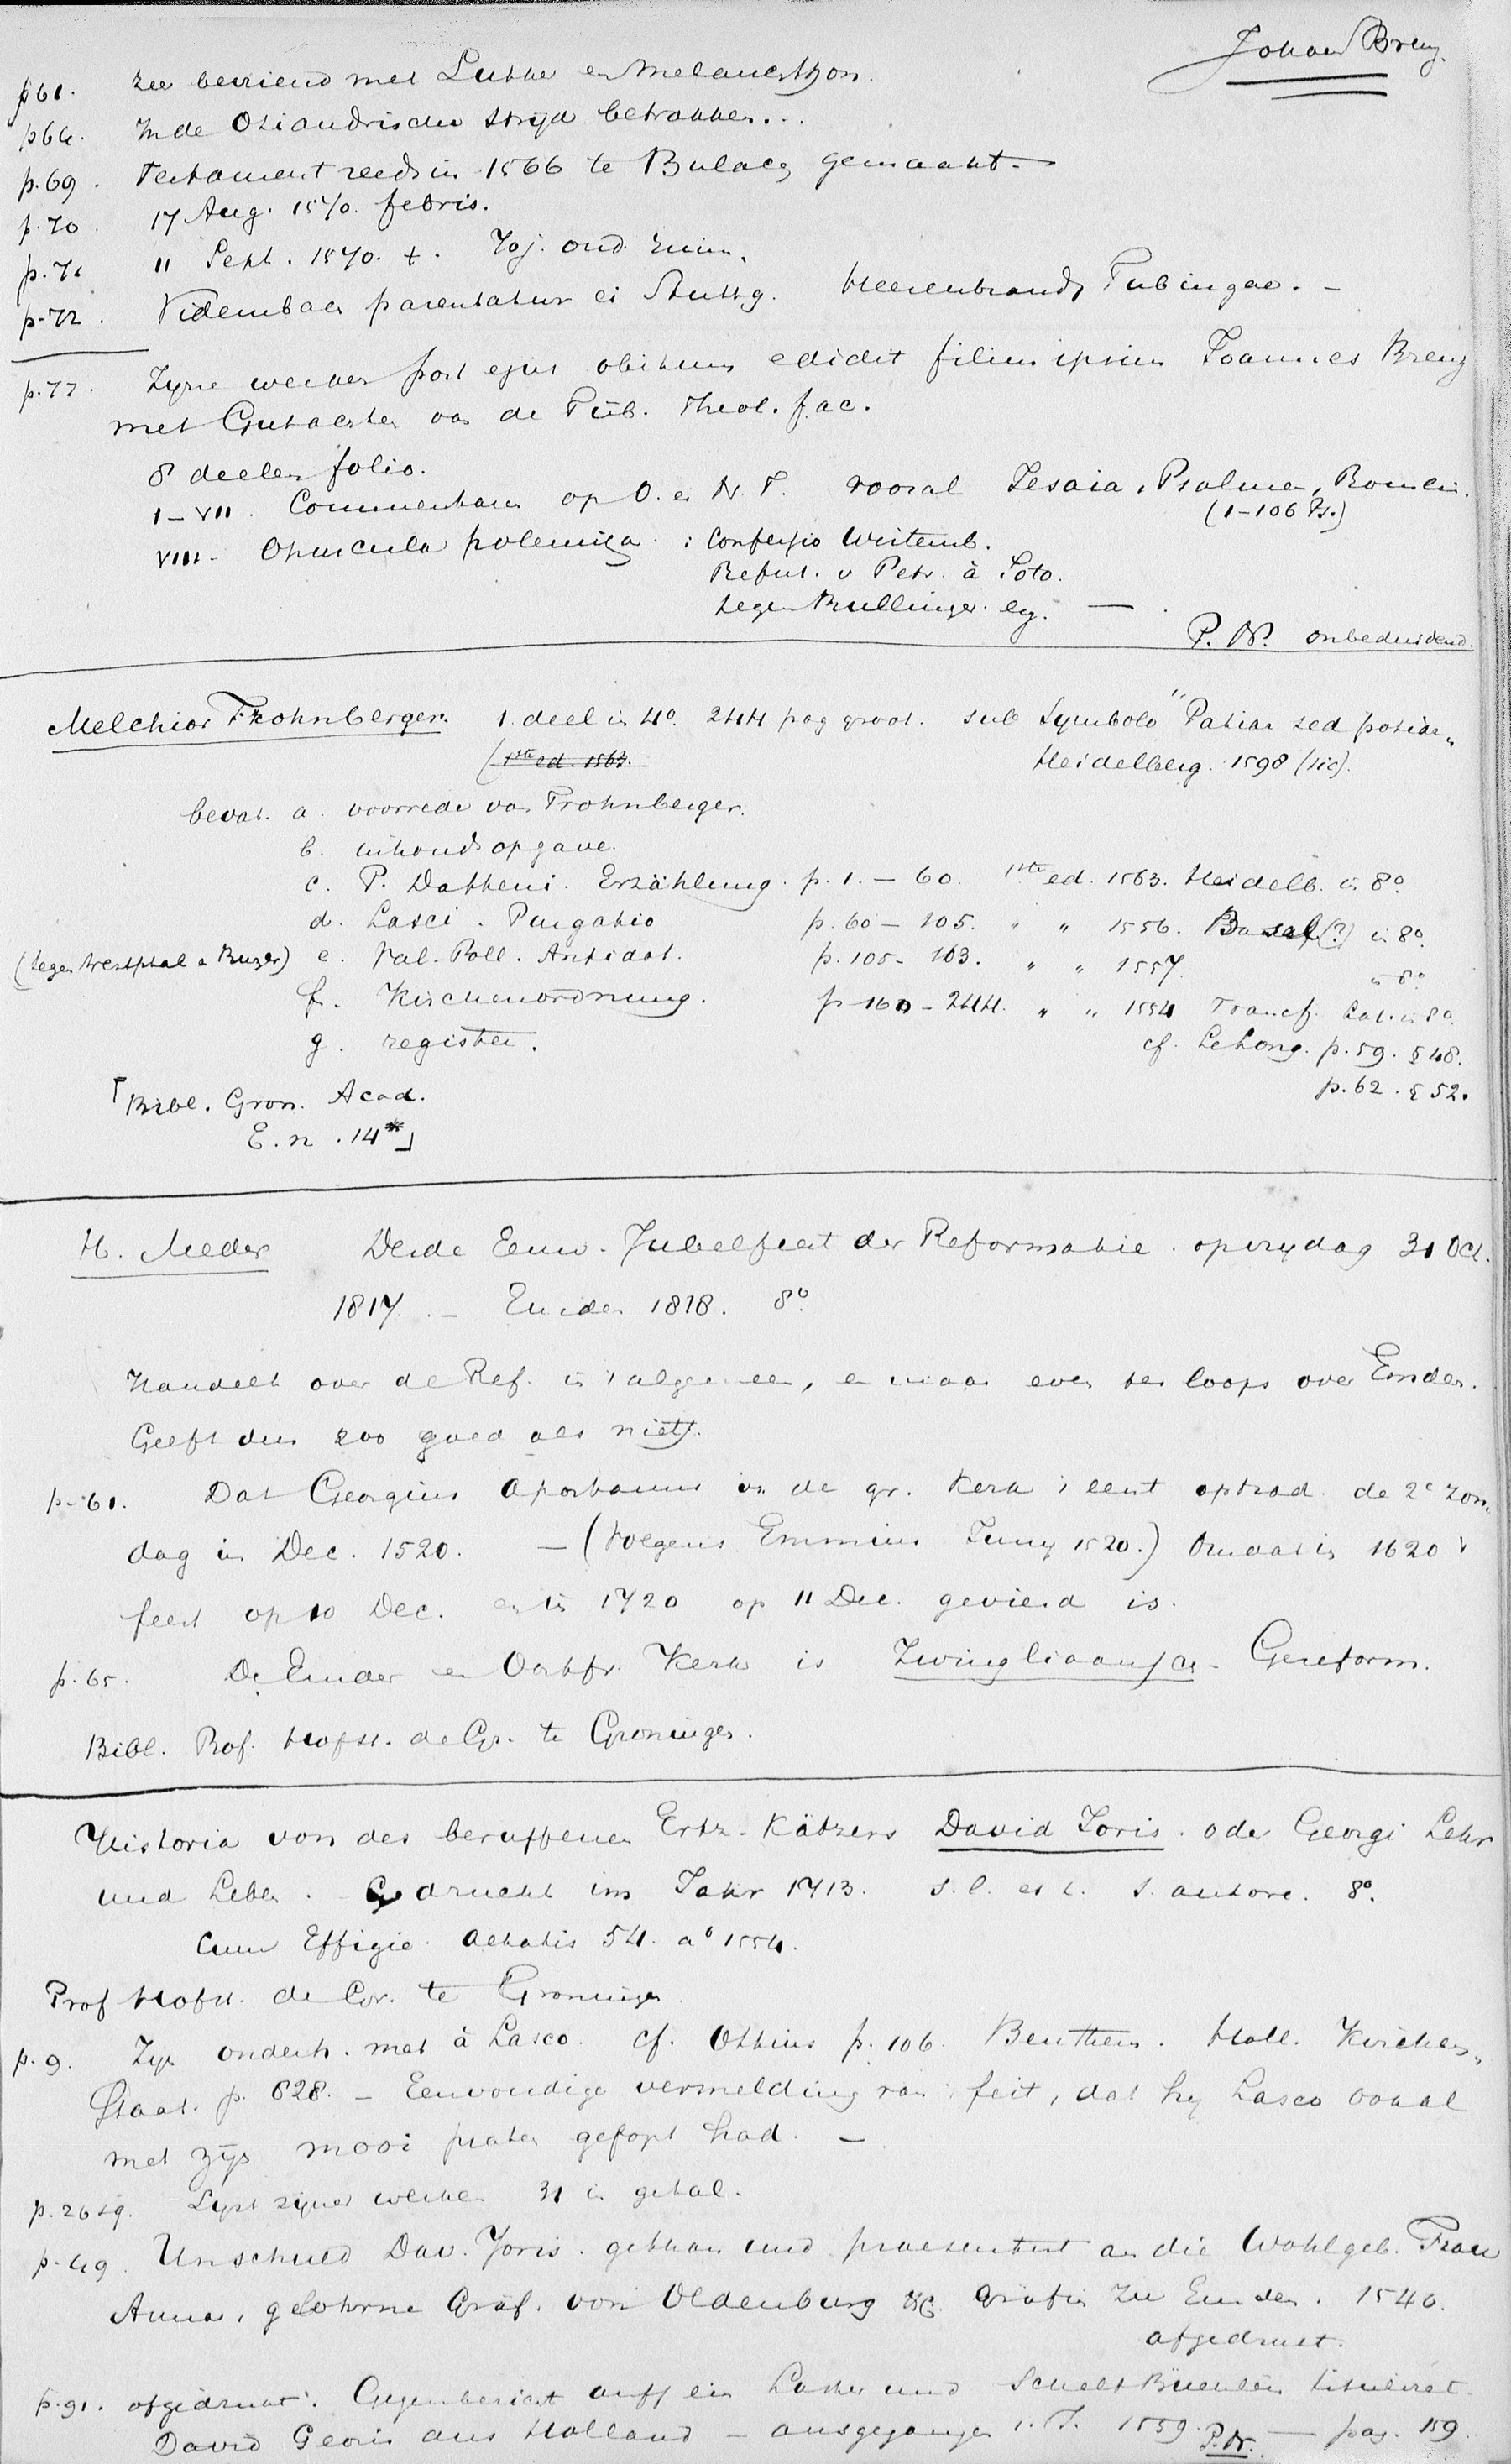 Johan Brenz.
p61. zeer bevriend met Luther en Melanchthon.
p64. In de Osiandrische strijd betrokken...
p.69. Testament reeds in 1566 te Bulach gemaakt.
p.70. 17 Aug. 1570. febris.
p.71 11 Sept. 1570. †. 70j. oud
p.72. Vidembach parentatur ei Stuttg. Heerenbrand, Tubingae. –
p.77. Zijne werken post ejus obitum edidit filius ipsius Joannes Brenz
met Gutachten van de Tüb. Theol. fac.
8 deelen folio.
I–VII. Commentaren op O. en N.T. vooral Jesaia, Psalmen, Romein.
(1–106 Ps.)
VIII. Opuscula polemica : Confessio Wirtemb.
Refut. v Petr. à Soto.
tegen Bullinger. —
P.M. onbeduidend.
Melchior Frohnberger. 1. deel in 4°. 244 pag groot. sub Symbolo "Patiar sed potiar"
(1ste ed. 1563. Heidelberg. 1598 (sic).
bevat. a. voorrede van Frohnberger.
b. inhoudsopgave.
c. P. Datheni. Erzählung. p. 1. – 60. 1ste ed. 1563. Heidelb. in 8°.
d. Lasci. Purgatio p. 60 – 105. " " 1556. Basel (?) in 8°.
(tegen Westphal en Buzer) e. Val. Poll. Antidot. p. 105 – 163. " " 1557. in 8°
f. Kirchenordnung. p 160 – 244. " " 1554 Francf. Lat. in 8°.
g. register. cf. LeLong. p. 59. § 48.
p. 62. § 52.
[Bibl. Gron. Acad.
E. n. 14*]
H. Meder Derde Eeuw-Jubelfeest der Reformatie. op vrydag 31 Oct.
1817. – Emden 1818. 8°.
Handelt over de Ref. in 't algemeen, en maar even ter loops over Emden.
Geeft dus zoo goed als niets.
p. 61. Dat Georgius Aportanus in de gr. Kerk 't eerst optrad de 2e zon-
dag in Dec. 1520. – (Volgens Emmius Juny 1520.) Omdat in 1620 't
feest op 10 Dec. en in 1720 op 11 Dec. gevierd is.
p. 65. De Emder en Oostfr. Kerk is Zwingliaansch-Gereform.
Bibl. Prof. Hofst. de Gr. te Groningen.
Historia von des beruffenen Ertz-Kätzers David Joris. oder Georgi Lehr
und Leben. Gedruckt im Jahr 1713. s.l. s. autore. 8°.
Cum Effigie. Aetatis 54. a° 1554.
Prof Hofst. de Gr. te Groningen
p. 9. Zijn onderh. met à Lasco. cf. Ottius p. 106. Benthem. Holl. Kirchen-
Staat. p. 828. – Eenvoudige vermelding van 't feit, dat hij Lasco
met zijn mooi praten gefopt had. –
p. 26 sq. Lijst zijner werken 31 in getal.
p. 49. Unschuld Dav. Joris. gethan und praesentirt an die Wohlgeb. Frau
Anna, gebohrne Gräf. von Oldenburg &c. Gräfin zu Emden. 1540.
afgedrukt.
p. 91. afgedrukt: Gegenbericht auff ein Laster und Schelt Büchlein titulirat.
David Georis aus Holland – ausgegangen i. J. 1559. P.M. — pag. 159.